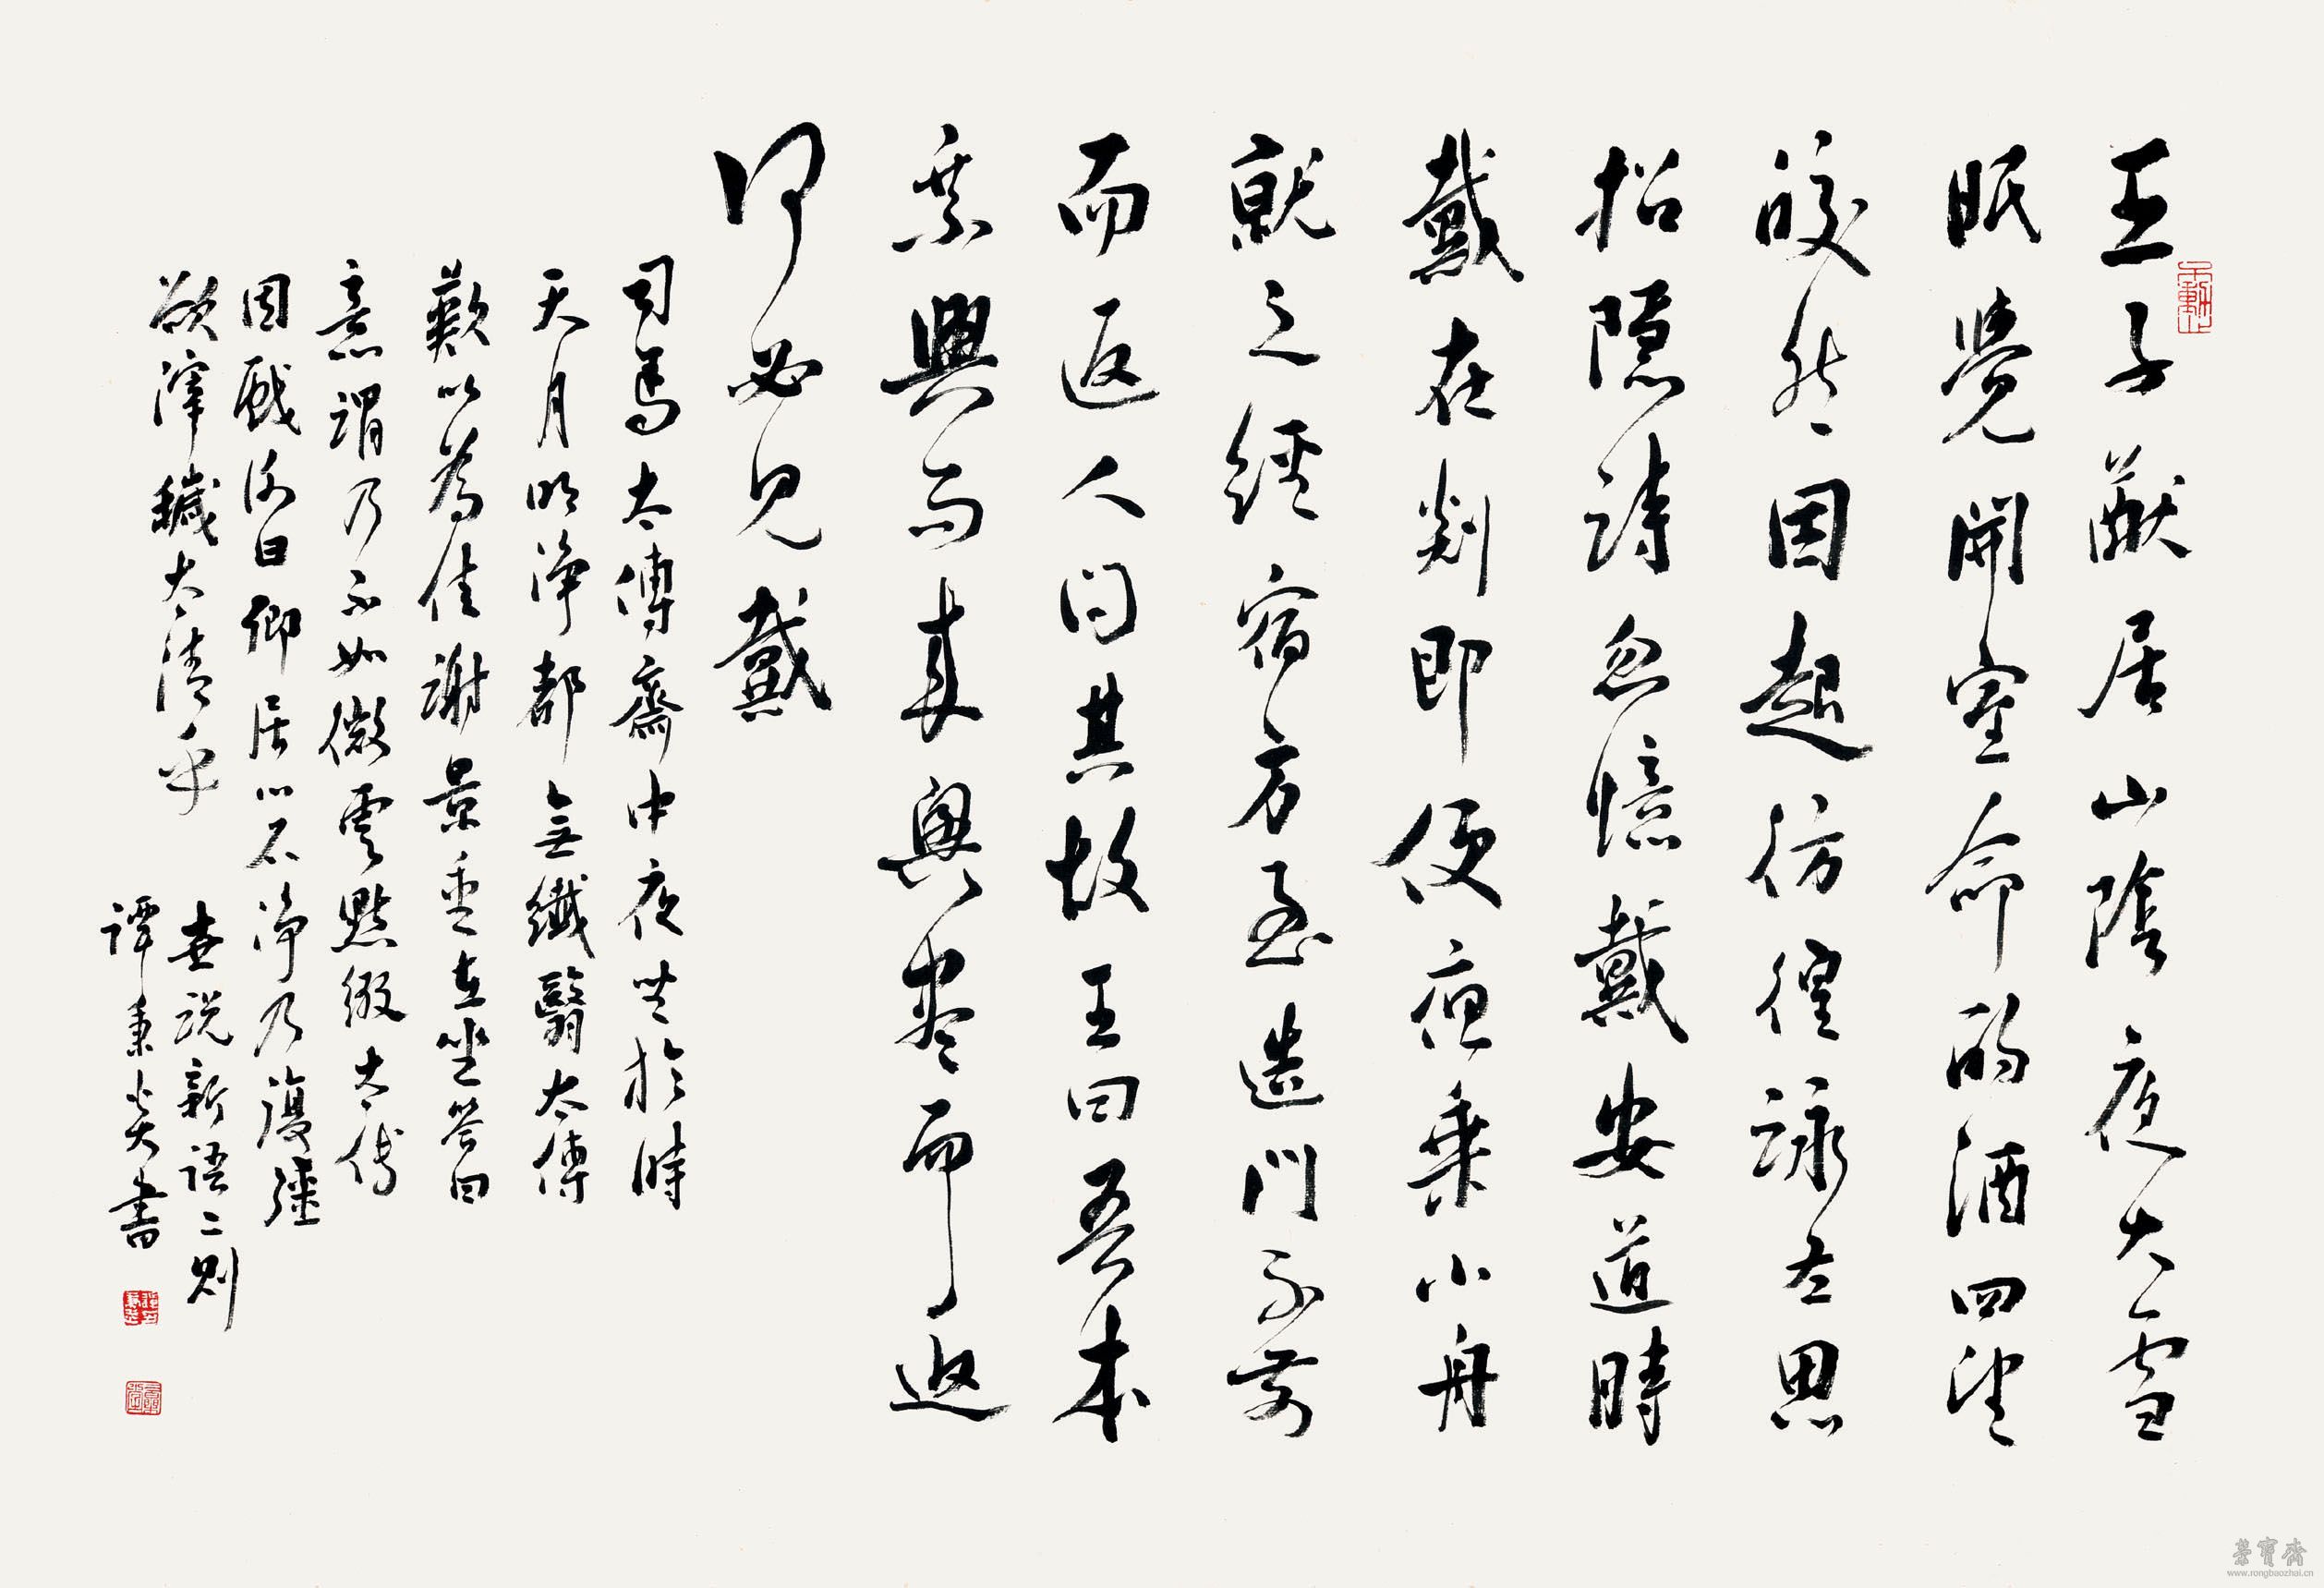 王子猷居山陰夜大雪
眠覺開室命酌酒四望
皎然因起彷徨詠左思
招隱詩忽憶戴安道時
戴在剡即便夜乘小舟
就之經宿方至造門不前
而返人問其故王曰吾本
乘興而來興盡而返
何必見戴
司馬太傅齋中夜坐於時
天月明淨都無纖翳太傅
歎以為佳謝景重在坐答曰
意謂乃不如微雲點綴太傅
因戲謝曰卿居心不淨乃復強
欲滓穢太清乎
世說新語二則
譚秉炎書
榮寶齋
www.rongbaozhai.cn